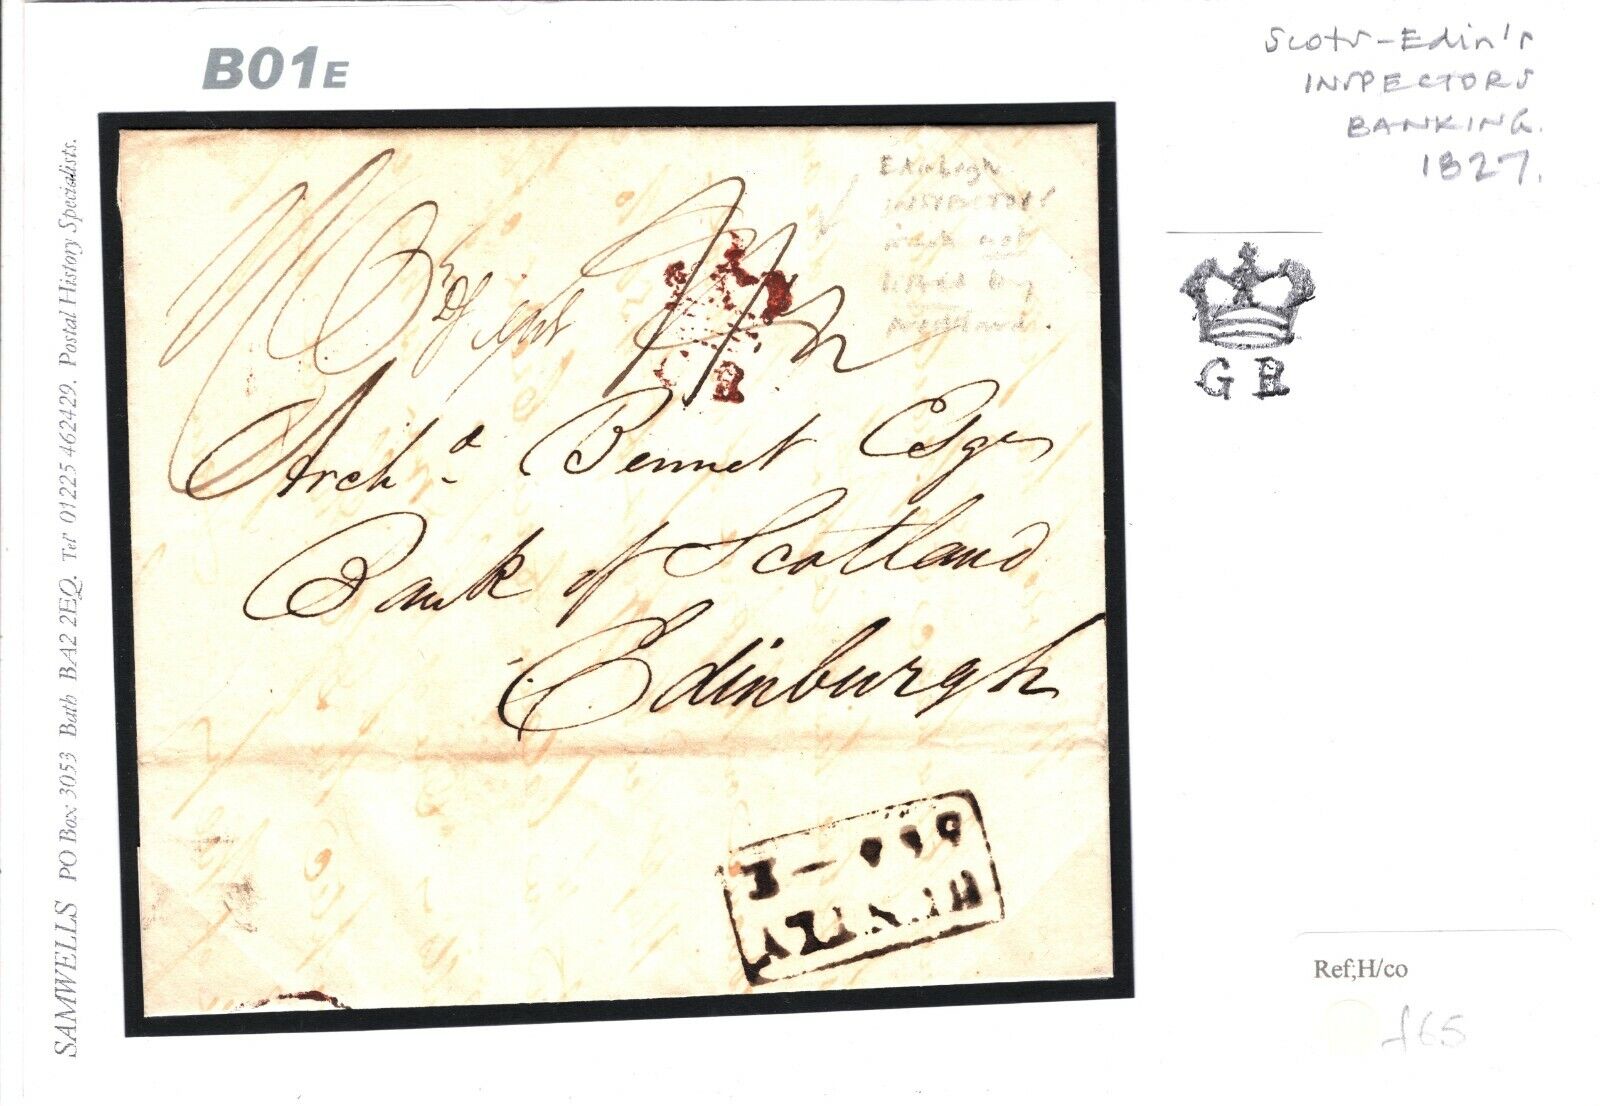 B01E
Scots-Edin'r
INSPECTORS
BANKING.
1827.
SAMWELLS PO Box 3053 Bath BA2 2EQ. Tel' 01225 462429. Postal History Specialists.
Edinburgh
INSPECTORS
mark not
listed by
G R
R
Archd. Bennet Esqr
Bank of Scotland
Edinburgh
HUNTLY
Ref;H/co
£65